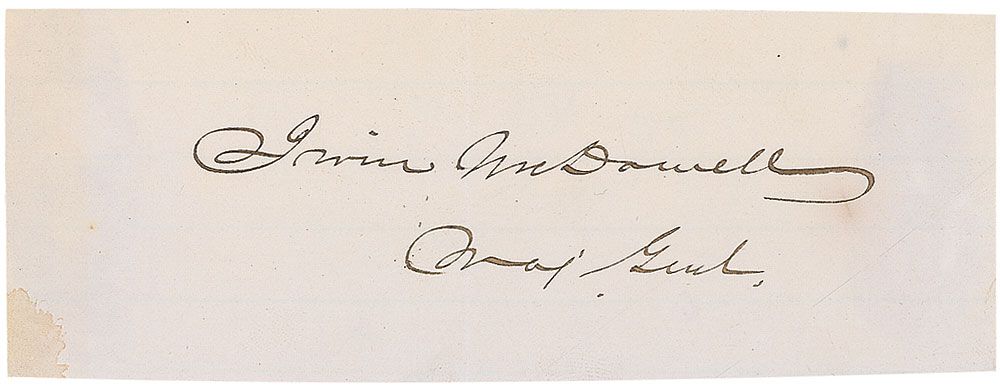 Irwin McDowell
Maj. Genl.